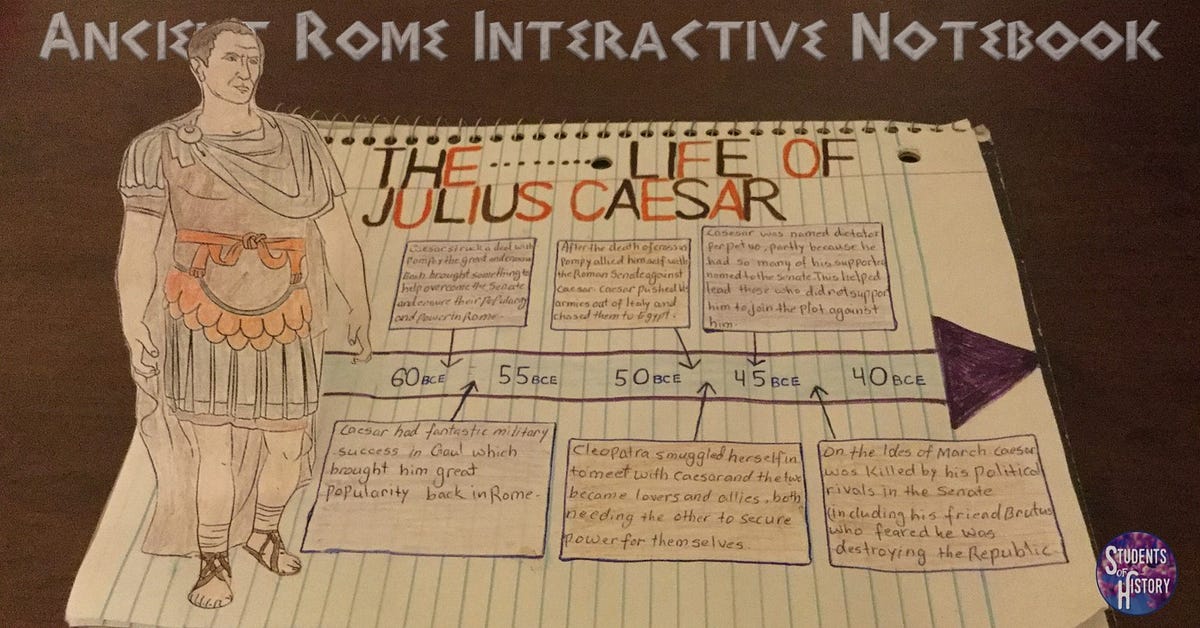 ANCIENT ROME INTERACTIVE NOTEBOOK
THE LIFE OF
JULIUS CAESAR
Caesar struck a deal with
Pompy the great and crassus
Both brought something to
help overcome the Senate
and ensure their Popularity
and power in Rome.
After the death of crassus
Pompy allied himself with
the Roman Senate against
Caesar. Caesar pushed his
armies out of Italy and
chased them to Egypt.
Casesar was named dictator
perpetuo, partly because he
had so many of his supported
named to the Senate. This helped
lead those who did not support
him to join the plot against
him.
60 BCE 55 BCE 50 BCE 45 BCE 40 BCE
Caesar had fantastic military
success in Gaul which
brought him great
popularity back in Rome.
Cleopatra smuggled herself in
to meet with Caesar and the two
became lovers and allies, both
needing the other to secure
power for themselves.
On the Ides of March Caesar
was killed by his political
rivals in the Senate
(including his friend Brutus)
who feared he was
destroying the Republic.
STUDENTS
OF
HISTORY